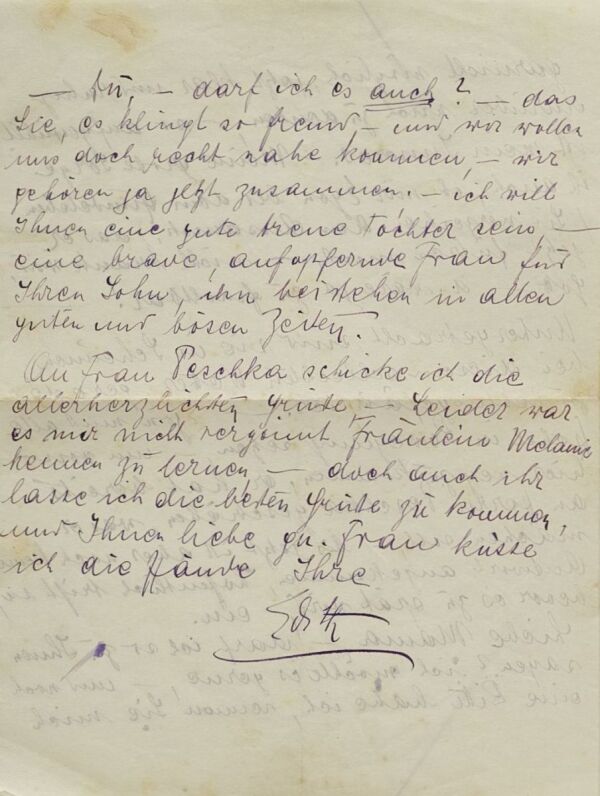 — Du, — darf ich es auch? — das
Sie, es klingt so fremd, — und wir wollen
uns doch recht nahe kommen, — wir
gehören ja jetzt zusammen. — ich will
Ihnen eine gute treue Tochter sein, —
eine brave, aufopfernde Frau für
Ihren Sohn, ihm beistehen in allen
guten und bösen Zeiten.
An Frau Peschka schicke ich die
allerherzlichsten Grüße, — Leider war
es mir nicht vergönnt Fräulein Melanie
kennen zu lernen, — doch auch ihr
lasse ich die besten Grüße zu kommen,
und Ihnen liebe gn. Frau küsse
ich die Hände Ihre
Edith